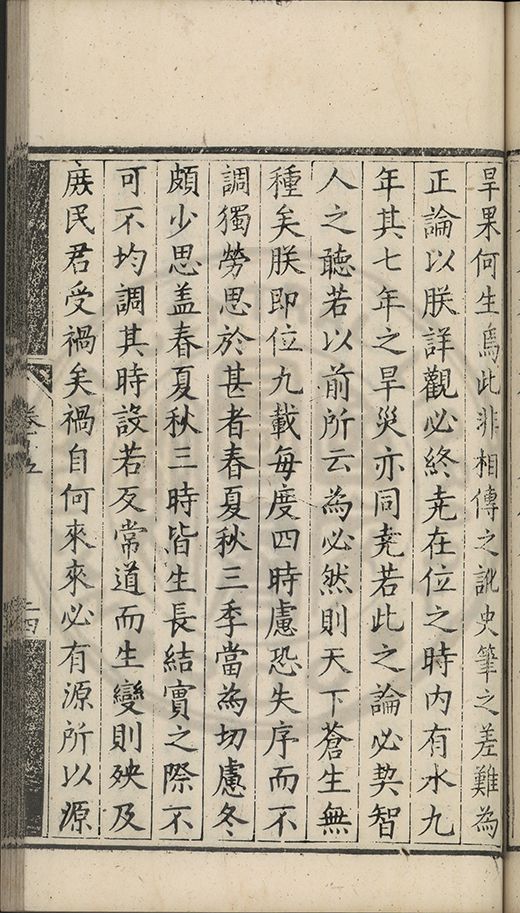 旱果何生焉此非相傳之訛史筆之差難為
正論以朕詳觀必終尭在位之時內有水九
年其七年之旱災亦同尭若此之論必契智
人之聽若以前所云為必然則天下蒼生無
種矣朕即位九載每度四時慮恐失序而不
調獨勞思於甚者春夏秋三季當為切慮冬
頗少思盖春夏秋三時皆生長結實之際不
可不均調其時設若反常道而生變則殃及
庻民君受禍矣禍自何來來必有源所以源
卷十五
二四